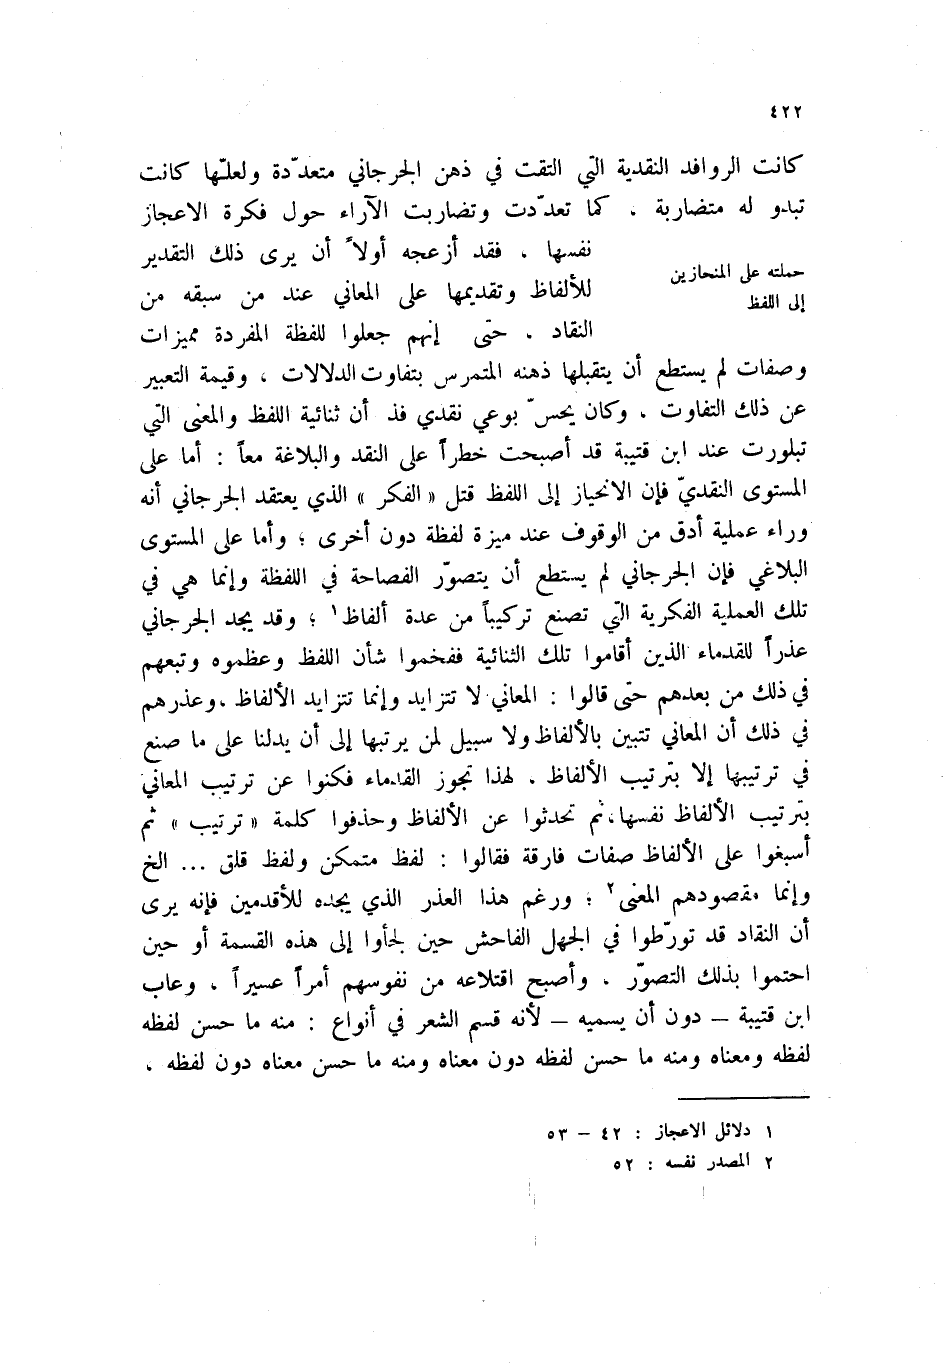 ٤٢٢
كانت الروافد النقدية التي التقت في ذهن الجرجاني متعدّدة ولعلّها كانت
تبدو له متضاربة . كما تعدّدت وتضاربت الآراء حول فكرة الاعجاز
نفسها . فقد أزعجه أولاً أن يرى ذلك التقدير
حملته على المنحازين
للألفاظ وتقديمها على المعاني عند من سبقه من
إلى اللفظ
النقاد . حتى إنهم جعلوا للفظة المفردة مميزات
وصفات لم يستطع أن يتقبلها ذهنه المتمرس بتفاوت الدلالات ، وقيمة التعبير
عن ذلك التفاوت . وكان يحسّ بوعي نقدي فذ أن ثنائية اللفظ والمعنى التي
تبلورت عند ابن قتيبة قد أصبحت خطراً على النقد والبلاغة معاً : أما على
المستوى النقديّ فإن الانحياز إلى اللفظ قتل « الفكر » الذي يعتقد الجرجاني أنه
وراء عملية أدق من الوقوف عند ميزة لفظة دون أخرى ؛ وأما على المستوى
البلاغي فإن الجرجاني لم يستطع أن يتصوّر الفصاحة في اللفظة وإنما هي في
تلك العملية الفكرية التي تصنع تركيباً من عدة ألفاظ١ ؛ وقد يجد الجرجاني
عذراً للقدماء الذين أقاموا تلك الثنائية ففخموا شأن اللفظ وعظموه وتبعهم
في ذلك من بعدهم حتى قالوا : المعاني لا تتزايد وإنما تتزايد الألفاظ . وعذرهم
في ذلك أن المعاني تتبين بالألفاظ ولا سبيل لمن يرتبها إلى أن يدلنا على ما صنع
في ترتيبها إلا بترتيب الألفاظ . لهذا تجوز القدماء فكنوا عن ترتيب المعاني
بترتيب الألفاظ نفسها، ثم تحدثوا عن الألفاظ وحذفوا كلمة « ترتيب » ثم
أسبغوا على الألفاظ صفات فارقة فقالوا : لفظ متمكن ولفظ قلق ... الخ
وإنما مقصودهم المعنى٢ ؛ ورغم هذا العذر الذي يجده للأقدمين فإنه يرى
أن النقاد قد تورّطوا في الجهل الفاحش حين لجأوا إلى هذه القسمة أو حين
احتموا بذلك التصوّر . وأصبح اقتلاعه من نفوسهم أمراً عسيراً . وعاب
ابن قتيبة – دون أن يسميه – لأنه قسم الشعر في أنواع : منه ما حسن لفظه
لفظه ومعناه ومنه ما حسن لفظه دون معناه ومنه ما حسن معناه دون لفظه ،
١ دلائل الاعجاز : ٤٢ – ٥٣
٢ المصدر نفسه : ٥٢